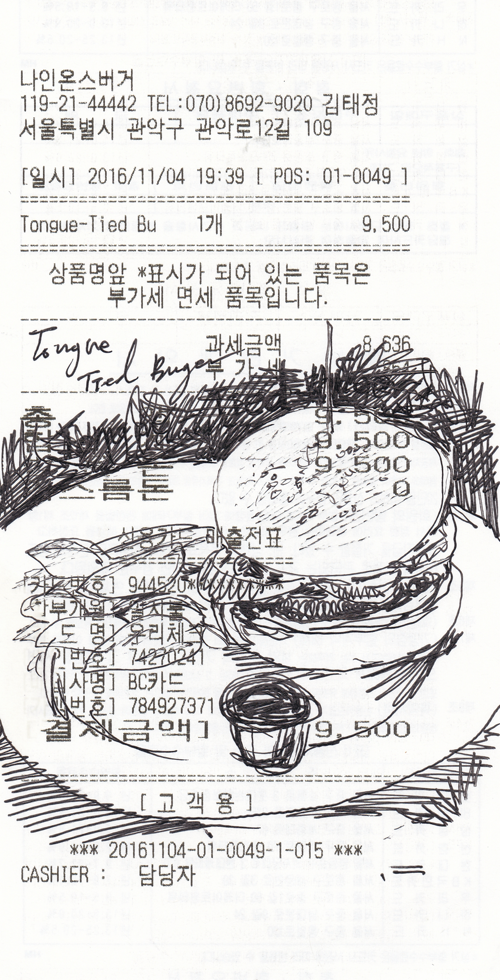 나인온스버거
119-21-44442 TEL:070)8692-9020 김태정
서울특별시 관악구 관악로12길 109
[일시] 2016/11/04 19:39 [ POS: 01-0049 ]
Tongue-Tied Bu 1개 9,500
상품명앞 *표시가 되어 있는 품목은
부가세 면세 품목입니다.
Tongue
Tied Burger
과세금액 8,636
부 가 세 864
총 9,500
9,500
9,500
스름돈 0
신용카드 매출전표
[카드번호] 944520**
할부개월 일시불
도 명] 우리체크
인번호] 74270241
사명] BC카드
번호] 784927371
결제금액] 9,500
[ 고 객 용 ]
*** 20161104-01-0049-1-015 ***
CASHIER : 담당자